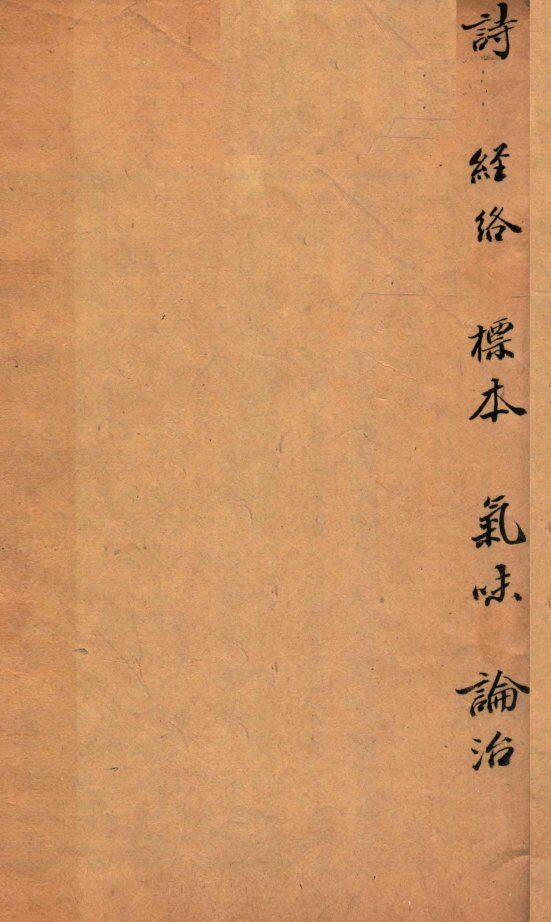 詩 経絡 標本 氣味 論治